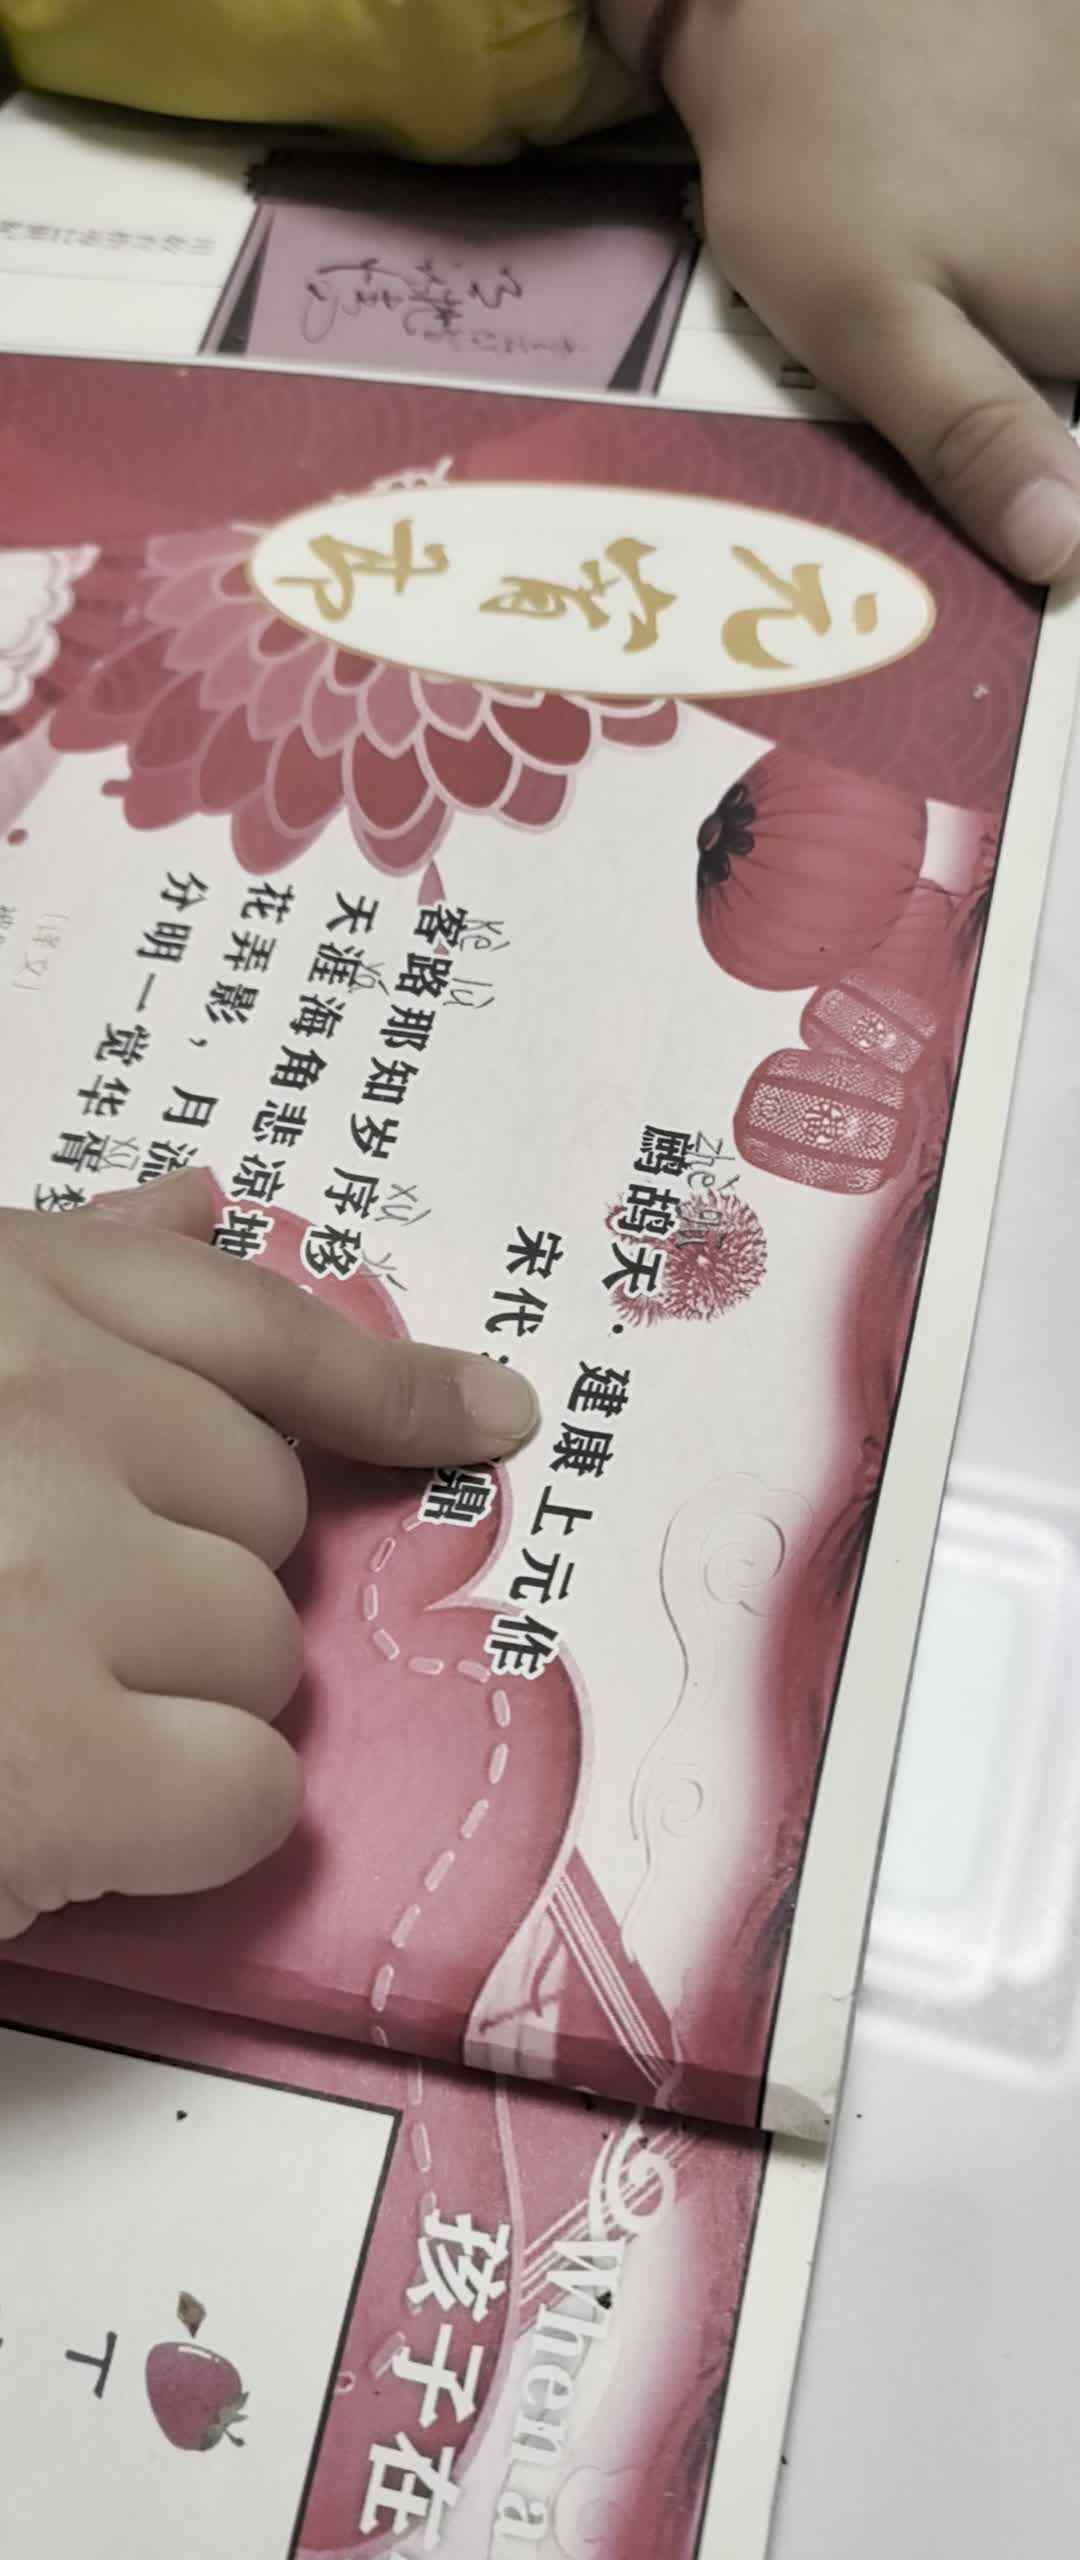 元宵节
鹧鸪天·建康上元作
zhè gū
宋代·
鼎
客路那知岁序移
kè lù xù yí
天涯海角悲凉地
yá
花弄影，月流
分明一觉华胥梦
xū
[译文]
When a
孩子在
T